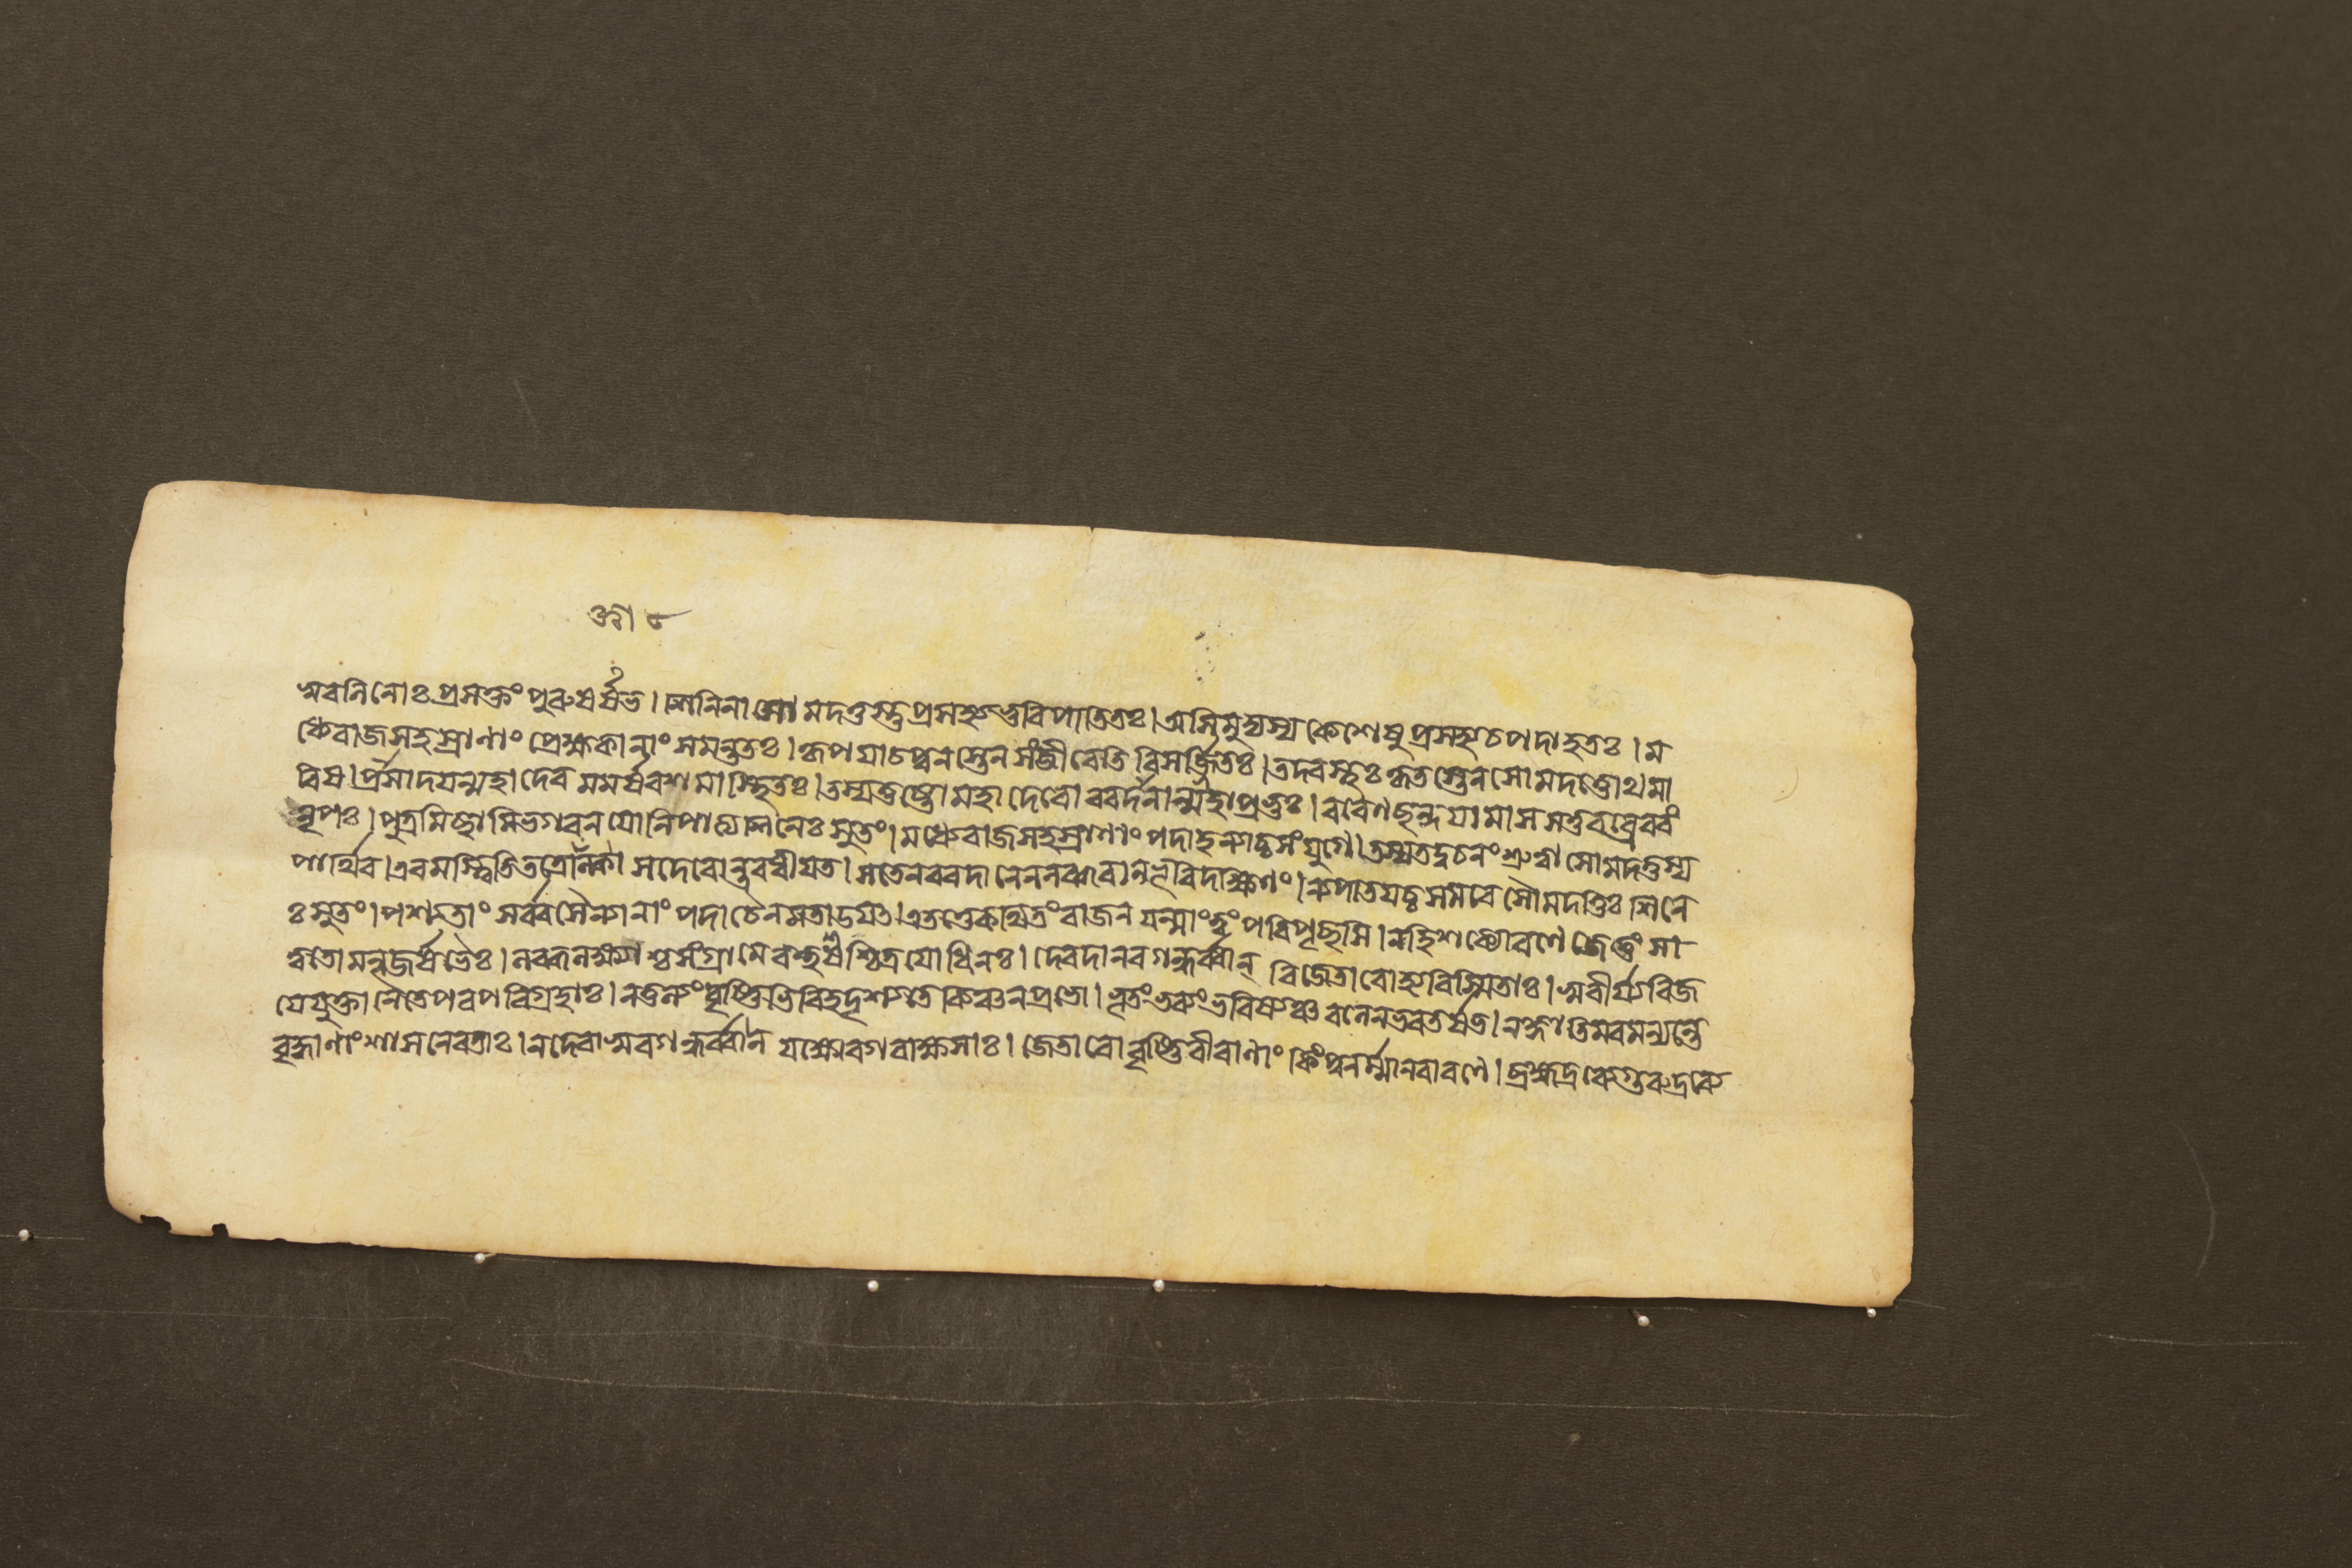 অবনিনোঃ প্রসক্তং পুরুষর্ষভ। শিনিনা সোমদত্তস্তু প্রসহ্য ভুবি পাতিতঃ। অসিমুদ্যম্য কেশেষু প্রগৃহ্য চ পদা হতঃ। ম
ধ্যে রাজসহস্রাণাং প্রেক্ষকানাং সমন্ততঃ। কৃপয়া চ পুনস্তেন সংজীবেতি বিসর্জিতঃ। তদবস্থঃ কৃতস্তেন সোমদত্তোথ মা
রিষ। প্রসাদয়ন্মহাদেবমমর্ষবশমাস্থিতঃ। তস্য তুষ্টো মহাদেবো বরদানান্মহাপ্রভুঃ। বরেণ ছন্দয়ামাস স তু বব্রে বরং
নৃপঃ। পুত্রমিচ্ছামি ভগবন যো নিপাত্য শিনেঃ সুতং। মধ্যে রাজসহস্রাণাং পদা হন্যাচ্চ সংযুগে। তস্য তদ্বচনং শ্রুত্বা সোমদত্তস্য
পার্থিব। এবমস্ত্বিতি তত্রোক্ত্বা স দেবোন্তরধীয়ত। স তেন বরদানেন লব্ধবান্ভূরিদক্ষিণং। ন্যপাতয়চ্চ সমরে সৌমদত্তিঃ শিনে
ঃ সুতং। পশ্যতাং সর্ব্বসৈন্যানাং পদা চৈনমতাডয়ৎ। এতত্তে কথিতং রাজন যন্মাং ত্বং পরিপৃচ্ছসি। নহি শক্যো রণে জেতুং সা
ত্বতো মনুজর্ষভৈঃ। লব্ধলক্ষ্যাশ্চ সংগ্রামে বহুধা চিত্রযোধিনঃ। দেবদানবগন্ধর্ব্বান্ বিজেতারো হ্যবিস্মিতাঃ। স্ববীর্যবিজ
য়ে যুক্তা নৈতে পরপরিগ্রহাঃ। ন তুল্যং বৃষ্ণিভিরিহ দৃশ্যতে কিঞ্চন প্রভো। ভূতং ভব্যং ভবিষ্যঞ্চ বলেন ভরতর্ষভ। ন জ্ঞাতিমবমন্যন্তে
বৃদ্ধানাং শাসনে রতাঃ। ন দেবাসুরগন্ধর্ব্বা ন যক্ষোরগরাক্ষসাঃ। জেতারো বৃষ্ণিবীরাণাং কিং পুনর্ম্মানবা রণে। ব্রহ্মদ্রব্যে গুরুদ্রব্যে